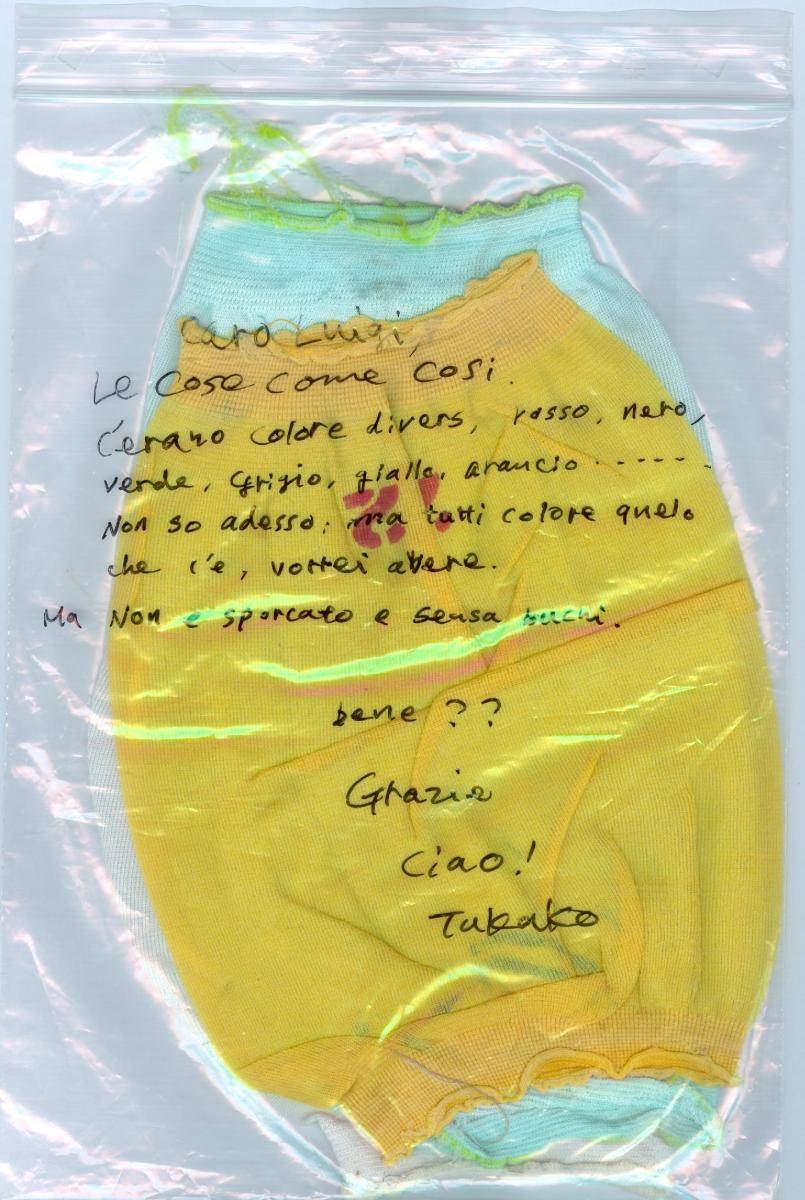 Caro Luigi,
Le Cose come Cosi.
C'erano colore divers, rosso, nero,
verde, Grigio, giallo, arancio ------
Non so adesso; ma tutti colore quelo
che c'e, vorrei abere.
Ma Non e sporcato e sensa buchi.
bene ??
Grazie
Ciao!
Takako